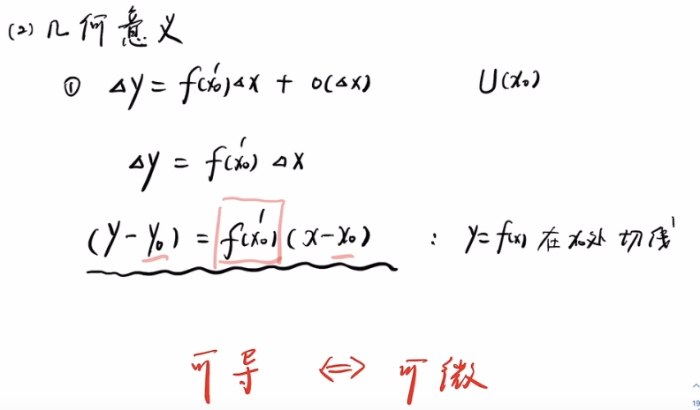 (2) 几何意义
① △y = f(x₀)′△x + o(△x) U(x₀)
△y = f(x₀)′ △x
(y - y₀) = f(x₀)′ (x - x₀) : y = f(x) 在x₀处 切线
可导 ⇔ 可微
19